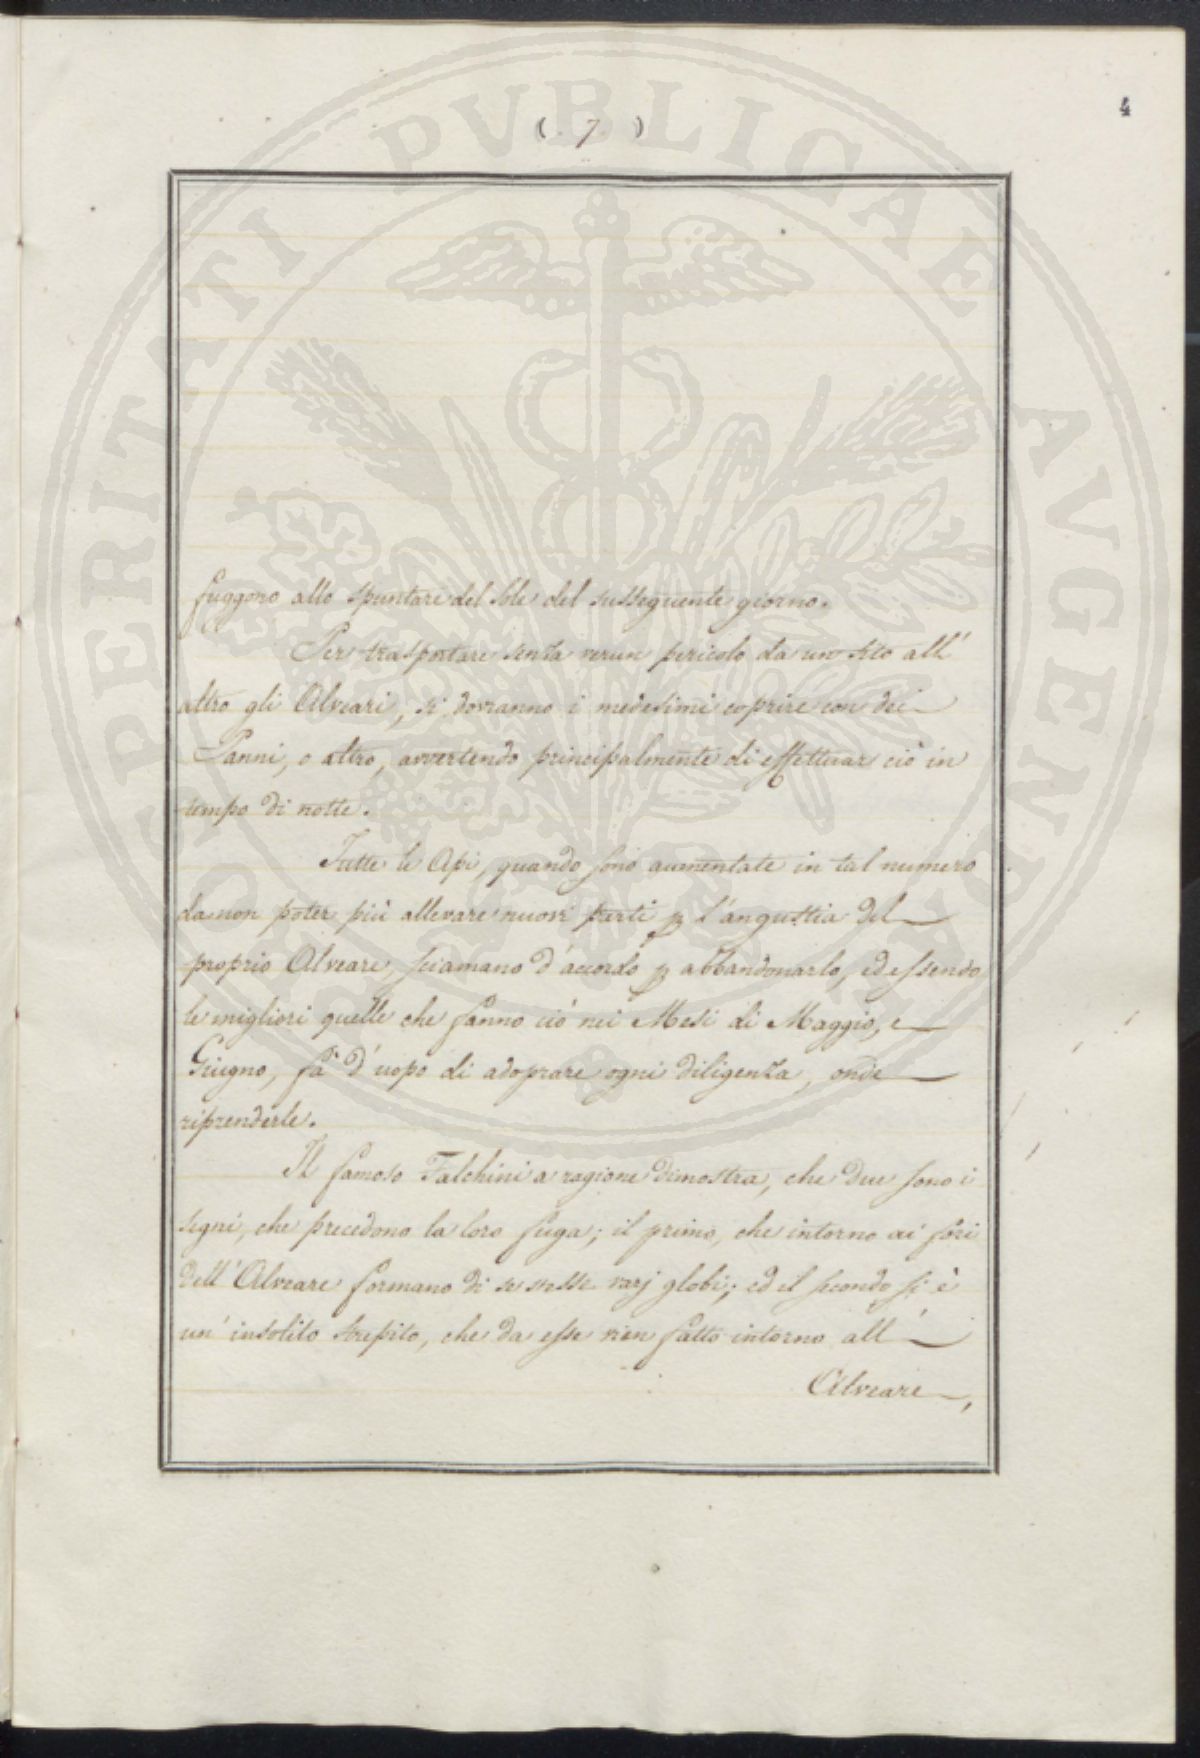 4
( 7 )
fuggono allo spuntare del Sole del susseguente giorno.
Per trasportare senza verun pericolo da un sito all'
altro gli Alveari, si dovranno i medesimi coprire con dei
Panni, o altro, avvertendo principalmente di effettuar ciò in
tempo di notte.
Tutte le Api, quando sono aumentate in tal numero
da non poter più allevare nuovi parti p l'angustia del
proprio Alveare, sciamano d'accordo p abbandonarlo, ed essendo
le migliori quelle che fanno ciò nei Mesi di Maggio, e
Giugno, fà d'uopo di adoprare ogni diligenza, onde
riprenderle.
Il famoso Falchini a ragione dimostra, che due sono i
segni, che precedono la loro fuga; il primo, che intorno ai fori
dell'Alveare formano di se stesse varj globi; ed il secondo si è
un' insolito strepito, che da esse vien fatto intorno all'
Alveare,
PROSPERITATI PVBLICAE AVGENDAE